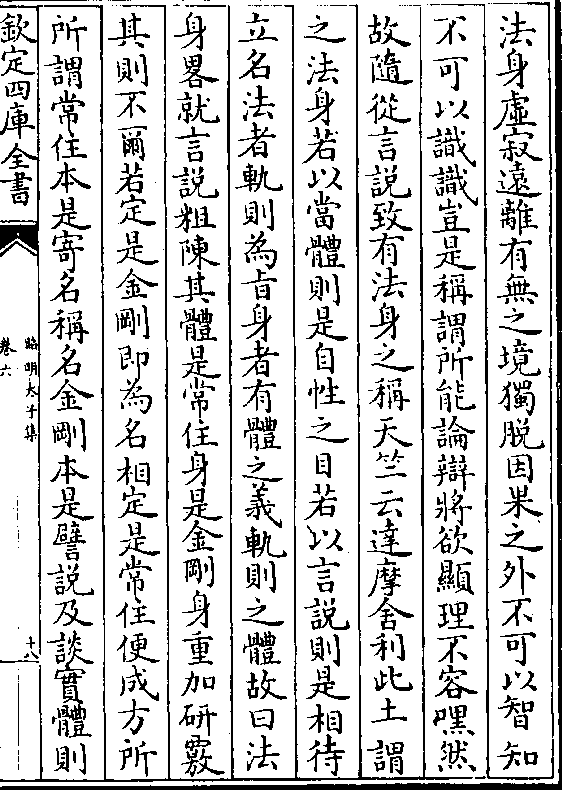 法身虛寂遠離有無之境獨脫因果之外不可以智知
不可以識識豈是稱謂所能論辯將欲顯理不容嘿然
故隨從言說致有法身之稱天竺云達摩舍利此土謂
之法身若以當體則是自性之目若以言說則是相待
立名法者軌則為旨身者有體之義軌則之體故曰法
身畧就言說粗陳其體是常住身是金剛身重加研覈
其則不爾若定是金剛即為名相定是常住便成方所
所謂常住本是寄名稱名金剛本是譬說及談實體則
欽定四庫全書
昭明太子集
卷六
十八